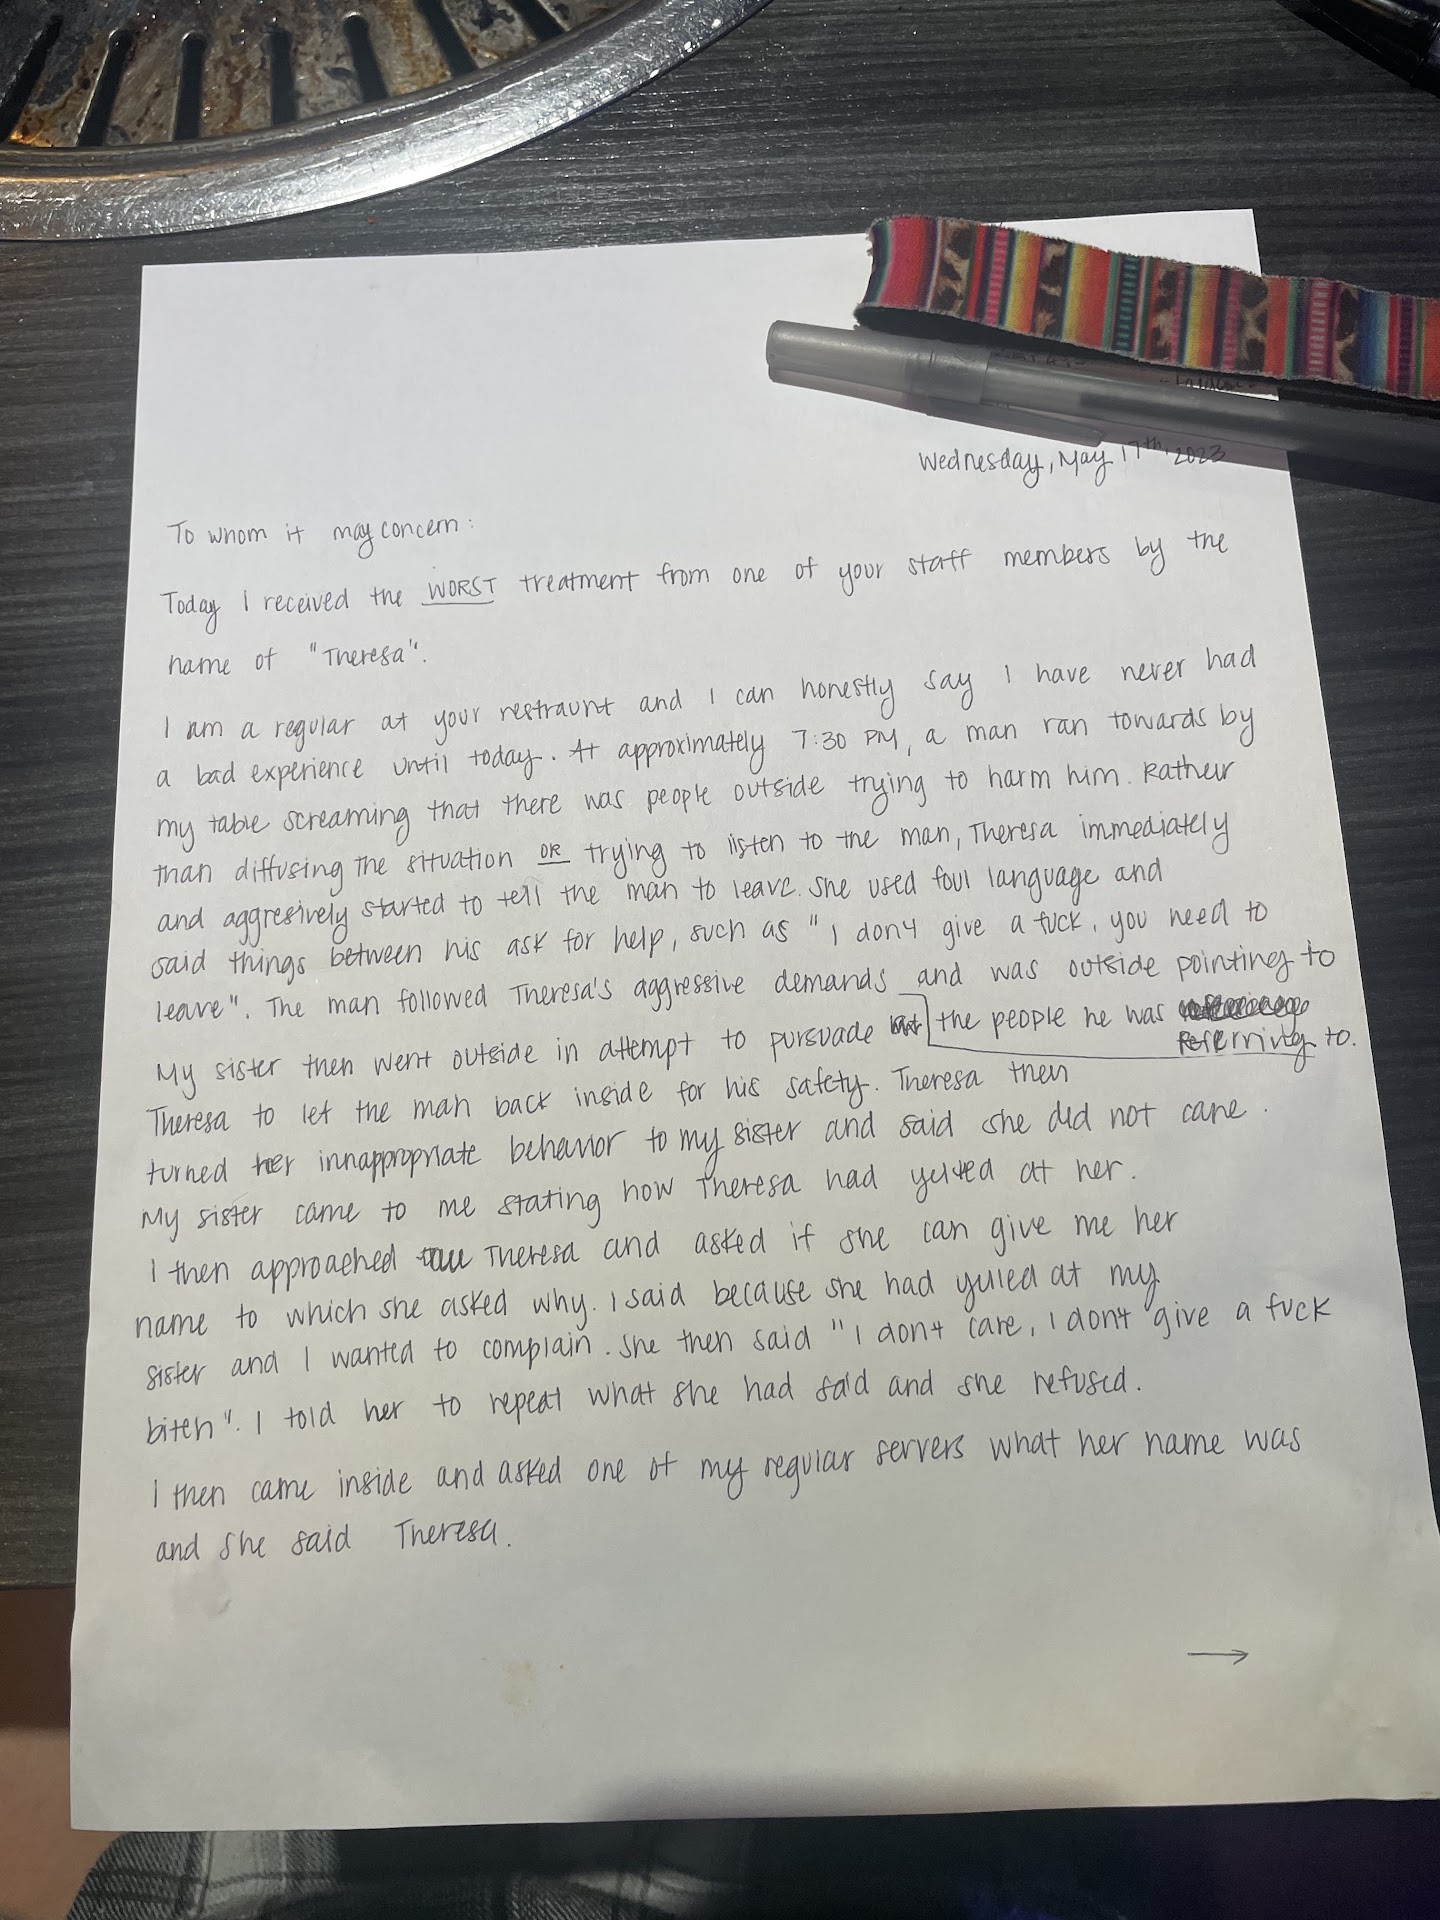 Wednesday, May 17th, 2023
To whom it may concern:
Today I received the WORST treatment from one of your staff members by the
name of "Theresa".
I am a regular at your restraunt and I can honestly say I have never had
a bad experience until today. At approximately 7:30 PM, a man ran towards by
my table screaming that there was people outside trying to harm him. Rather
than diffusing the situation OR trying to listen to the man, Theresa immediately
and aggresively started to tell the man to leave. She used foul language and
said things between his ask for help, such as "I don't give a fuck, you need to
leave". The man followed Theresa's aggressive demands and was outside pointing to
the people he was
referring to.
My sister then went outside in attempt to pursuade
Theresa to let the man back inside for his safety. Theresa then
turned her innappropriate behavior to my sister and said she did not care.
My sister came to me stating how Theresa had yelled at her.
I then approached Theresa and asked if she can give me her
name to which she asked why. I said because she had yelled at my
sister and I wanted to complain. She then said "I don't care, I don't give a fuck
bitch". I told her to repeat what she had said and she refused.
I then came inside and asked one of my regular servers what her name was
and she said Theresa.
→